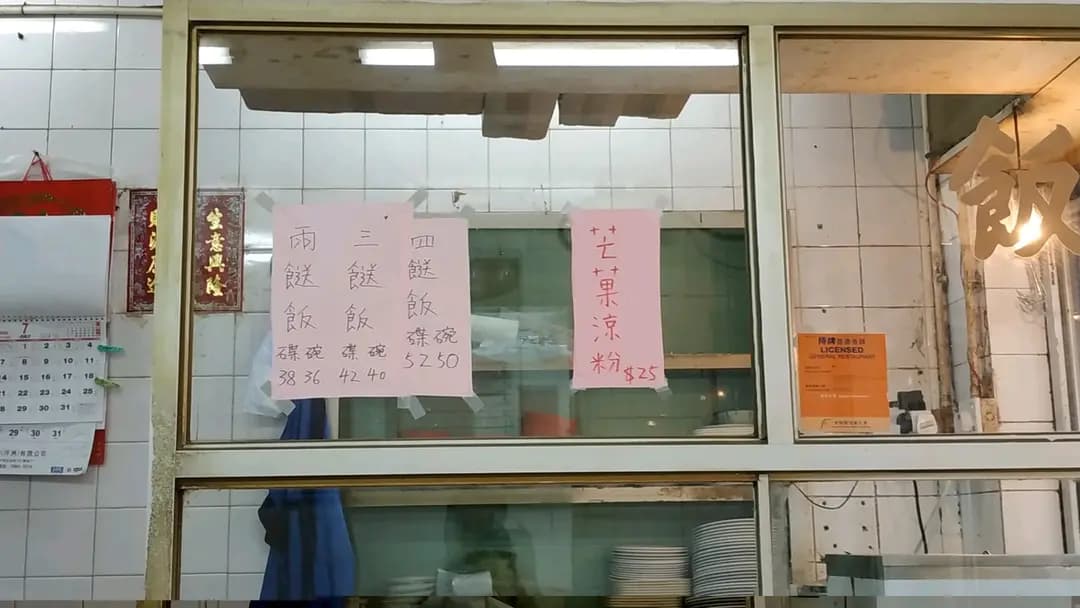 生意興隆
兩餸飯
碟 碗
38 36
三餸飯
碟 碗
42 40
四餸飯
碟 碗
52 50
芒果涼粉
$25
飯
持牌普通食肆
LICENSED
GENERAL RESTAURANT
7
1 2 3 4
8 9 10 11
15 16 17 18
22 23 24 25
29 30 31
29 30 31